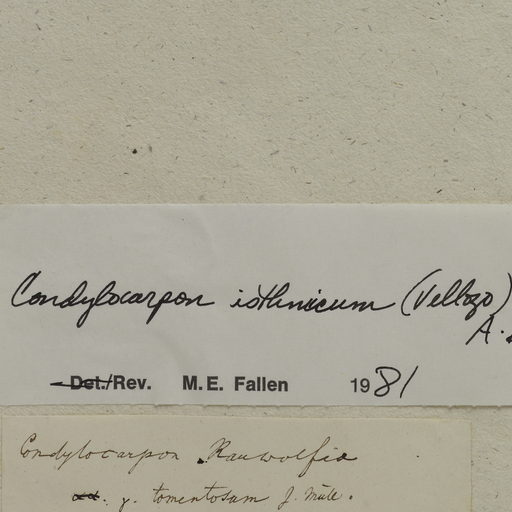 Condylocarpon isthmicum (Vellozo)
A.
Det./Rev. M.E. Fallen 1981
Condylocarpon Rauwolfia
γ. tomentosum J. Müll.